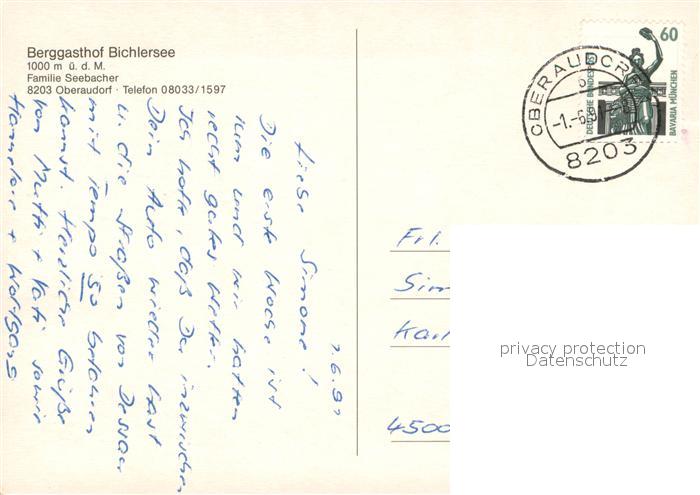 Berggasthof Bichlersee
1000 m ü. d. M.
Familie Seebacher
8203 Oberaudorf · Telefon 08033/1597
60
DEUTSCHE BUNDESPOST
BAVARIA MÜNCHEN
OBERAUDORF
-1.-6.
8203
Liebe Simone!
Die erste Woche ist
rum und wir hatten
recht gutes Wetter.
Ich hoffe, daß Du inzwischen
Dein Auto wieder hast
u. die Straßen von Dessau
mit Tempo 50 befahren
kannst. Herzliche Grüße
von Mutti + Vati sowie
Hannelore + Wolfgang
Frl.
Sim
Karl
4500
privacy protection
Datenschutz